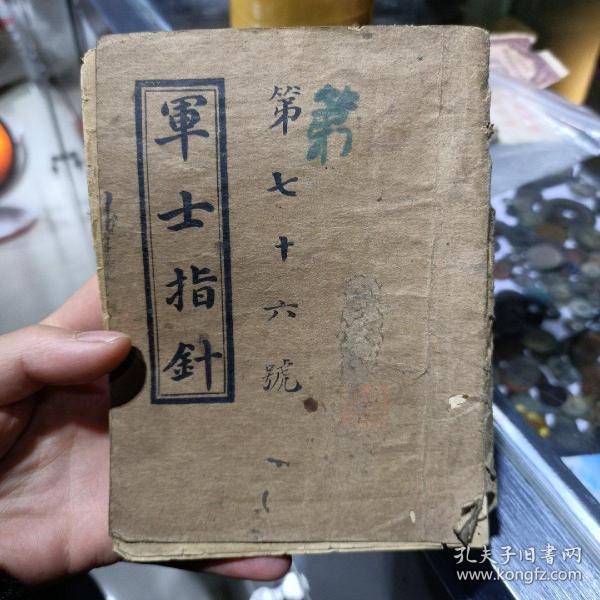 第
第七十六號
軍士指針
孔夫子旧书网
www.kongfz.com